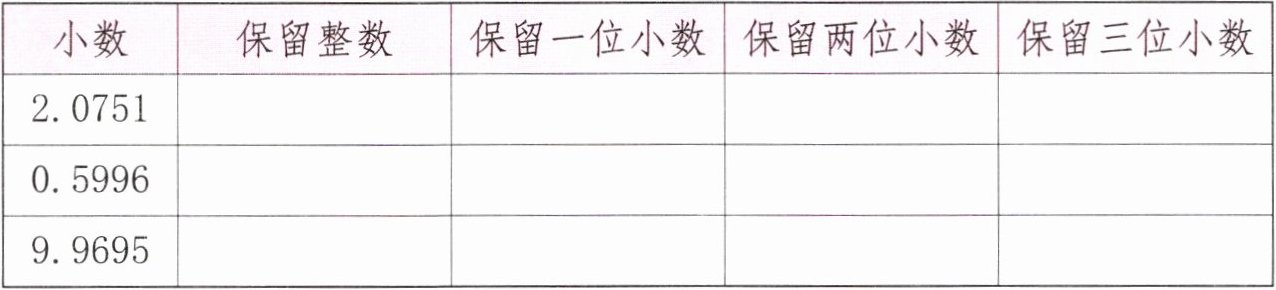 小数 保留整数 保留一位小数 保留两位小数 保留三位小数
2.0751
0.5996
9.9695